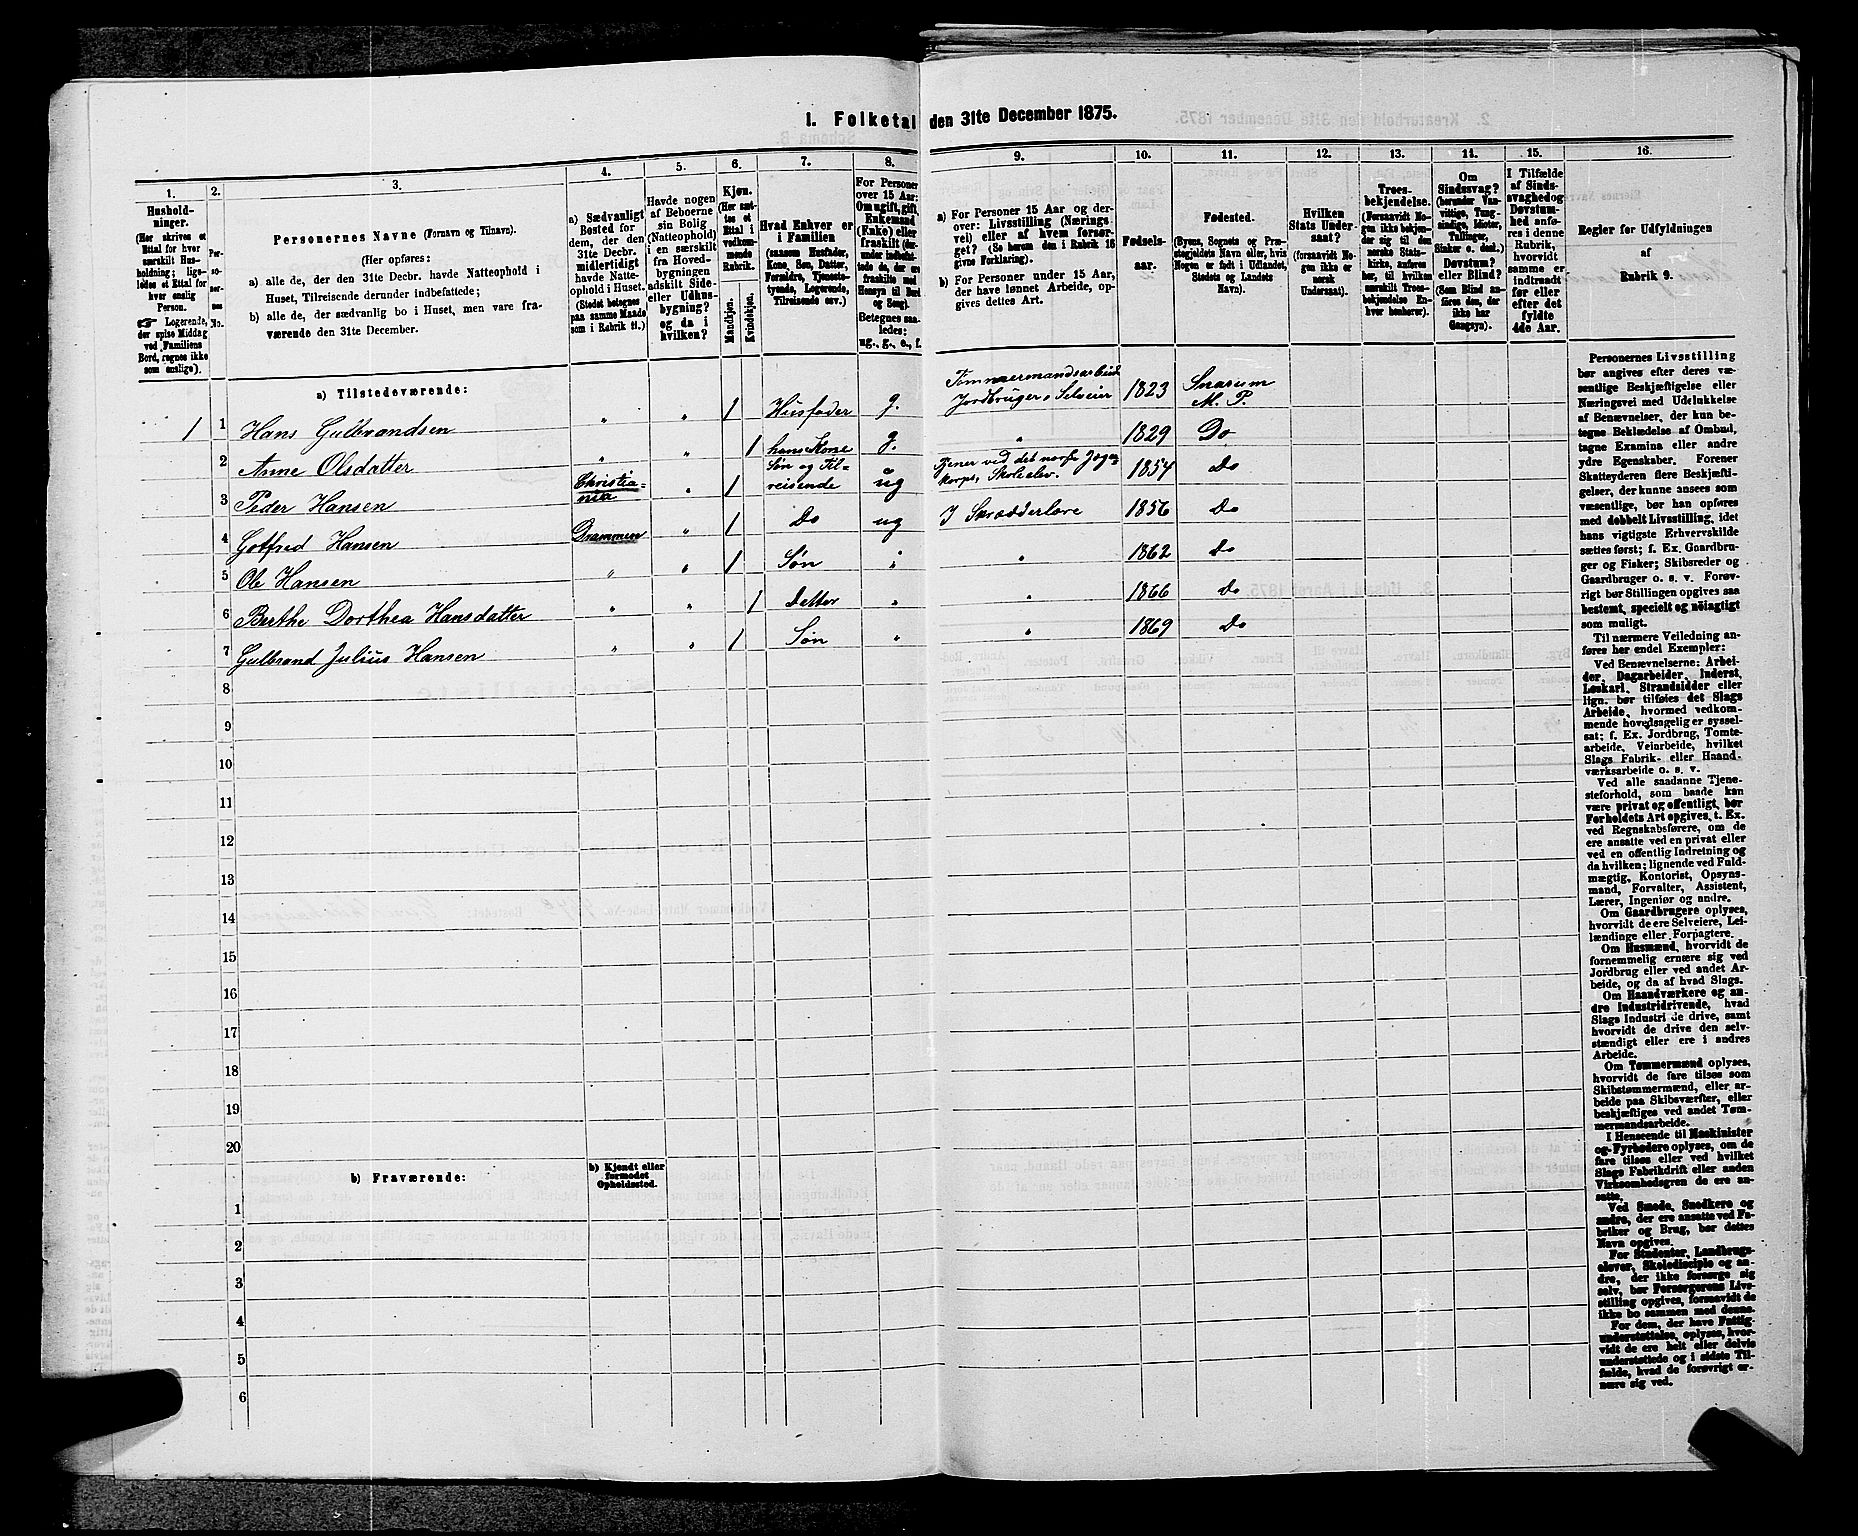 1. Folketal den 31te December 1875.
1.
2.
3.
4.
5.
6.
7.
8.
9.
10.
11.
12.
13.
14.
15.
16.
Hushold-
ninger.
(Her skrives et
Ettal for hver
særskilt Hus-
holdning; lige-
ledes et Ettal for
hver enslig
Person.
Logerende,
der spise Middag
ved Familiens
Bord, regnes ikke
som enslige).
Per-
so-
ner-
nes
No.
Personernes Navne (Fornavn og Tilnavn).
(Her opføres:
a) alle de, der den 31te Decbr. havde Natteophold i
Huset, Tilreisende derunder indbefattede;
b) alle de, der sædvanlig bo i Huset, men vare fra-
værende den 31te December.
a) Sædvanligt
Bosted for
dem, der den
31te Decbr.
midlertidigt
havde Natte-
ophold i Huset.
(Stedet betegnes
paa samme Maade
som i Rubrik 11.)
Havde nogen
af Beboerne
sin Bolig
(Natteophold)
i en særskilt
fra Hoved-
bygningen
adskilt Side-
eller Udhus-
bygning?
og da i
hvilken?
Kjøn.
(Her sæt-
tes et
Ettal i
vedkom-
mende
Rubrik.
Mandkjøn.
Kvindekjøn.
Hvad Enhver er
i Familien
(saasom Husfader,
Kone, Søn, Datter,
Forældre, Tjeneste-
tyende, Logerende,
Tilreisende osv.)
For Personer
over 15 Aar:
Om ugift, gift,
Enkemand
(Enke) eller
fraskilt
Betegnes saa-
ledes:
ug., g., e., f.
a) For Personer 15 Aar og der-
over: Livsstilling (Nærings
vei) eller af hvem forsør-
get? (Se herom den i Rubrik 16
givne Forklaring).
b) For Personer under 15 Aar,
der have lønnet Arbeide, op-
gives dettes Art.
Fødsels-
aar.
Fødested.
(Byens, Sognets og Præ-
stegjeldets Navn eller, hvis
Nogen er født i Udlandet,
Stedets og Landets
Navn).
Hvilken
Stats Under-
saat?
(forsaavidt No-
gen ikke er
norsk
Undersaat).
Troes-
bekjendelse.
(Forsaavidt No-
gen ikke bekjen-
der sig til den
norske Stats-
kirke, anføres
her, til hvilken
særskilt Troes-
bekjendelse En-
hver henhører).
Om
Sindssvag?
(herunder Van-
vittige, Tung-
sindige, Idioter,
Tullinger,
Sinker o. desl.)
Døvstum?
eller Blind?
(Som Blind an-
føres den, der
ikke har
Gangsyn).
I Tilfælde
af Sinds-
svaghed og
Døvstum-
hed anfø-
res i denne
Rubrik,
hvorvidt
samme er
indtraadt
før eller
efter det
fyldte
4de Aar.
Regler for Udfyldningen
af
Rubrik 9.
a) Tilstedeværende:
1 1 Hans Gulbrandsen " " 1 Husfader g. Tømmermandsarbeide Jordbruger, Selveier 1823 Snarum M. P.
2 Anne Olsdatter " " 1 hans Kone g. " 1829 Do
3 Peder Hansen Christiania " 1 Søn og Tilreisende ug Tjener ved det norske Jægerkorps, Skoleelev. 1854 Do
4 Gotfred Hansen Drammen " 1 Do ug I Skrædderlære 1856 Do
5 Ole Hansen " " 1 Søn " " 1862 Do
6 Berthe Dorthea Hansdatter " " 1 Datter " " 1866 Do
7 Gulbrand Julius Hansen " " 1 Søn " " 1869 Do
8
9
10
11
12
13
14
15
16
17
18
19
20
b) Fraværende:
b) Kjendt eller
formodet
Opholdssted.
1
2
3
4
5
6
Personernes Livsstilling
bør angives efter deres væ-
sentlige Beskjæftigelse eller
Næringsvei med Udelukkelse
af Benævnelser, der kun be-
tegne Beklædelse af Ombud,
tagne Examina eller andre
ydre Egenskaber. Forener
Skatteyderen flere Beskjæfti-
gelser, der kunne ansees som
væsentlige, bør han opføres
med dobbelt Livsstilling, idet
hans vigtigste Erhvervskilde
sættes først; f. Ex. Gaardbru-
ger og Fisker; Skibsreder og
Gaardbruger o. s. v. Forøv-
rigt bør Stillingen opgives saa
bestemt, specielt og nöiagtigt
som muligt.
Til nærmere Veiledning an-
føres her endel Exempler:
Ved Benævnelserne: Arbei-
der, Dagarbeider, Inderst,
Løskarl, Strandsidder eller
lign. bør tilføies det Slags
Arbeide, hvormed vedkom-
mende hovedsagelig er syssel-
sat; f. Ex. Jordbrug, Tomte-
arbeide, Veiarbeide, hvilket
Slags Fabrik- eller Haand-
værksarbeide o. s. v.
Ved alle saadanne Tjene-
steforhold, som baade kan
være privat og offentligt, bør
Forholdets Art opgives, t. Ex.
ved Regnskabsførere, om de
ere ansatte ved en privat eller
ved en offentlig Indretning og
da hvilken; lignende ved Fuld-
mægtig, Kontorist, Opsyns-
mand, Forvalter, Assistent,
Lærer, Ingeniør og andre.
Om Gaardbrugere oplyses,
hvorvidt de ere Selveiere, Lei-
lændinge eller Forpagtere.
Om Husmænd, hvorvidt de
fornemmelig ernære sig ved
Jordbrug eller ved andet Ar-
beide, og da af hvad Slags.
Om Haandværkere og an-
dre Industridrivende, hvad
Slags Industri de drive, samt
hvorvidt de drive den selv-
stændigt eller ere i andres
Arbeide.
Om Tømmermænd oplyses,
hvorvidt de fare tilsøs som
Skibstømmermænd, eller ar-
beide paa Skibsværfter, eller
beskjæftiges ved andet Tøm-
mermandsarbeide.
I Henseende til Maskinister
og Fyrbødere oplyses, om de
fare tilsøs eller ved hvilket
Slags Fabrikdrift eller anden
Virksomhedsgren de ere an-
satte.
Ved Smede, Snedkere og
andre, der ere ansatte ved Fa-
briker og Brug, bør dettes
Navn opgives.
For Studenter, Landbrugs-
elever, Skoledisciple og an-
dre, der ikke forsørge sig
selv, bør Forsørgerens Livs-
stilling opgives, forsaavidt de
ikke bo sammen med denne.
For dem, der have Fattig-
understøttelse, oplyses, hvor-
vidt de ere helt eller delvis
understøttede og i sidste Til-
fælde, hvad de forøvrigt er-
nære sig ved.